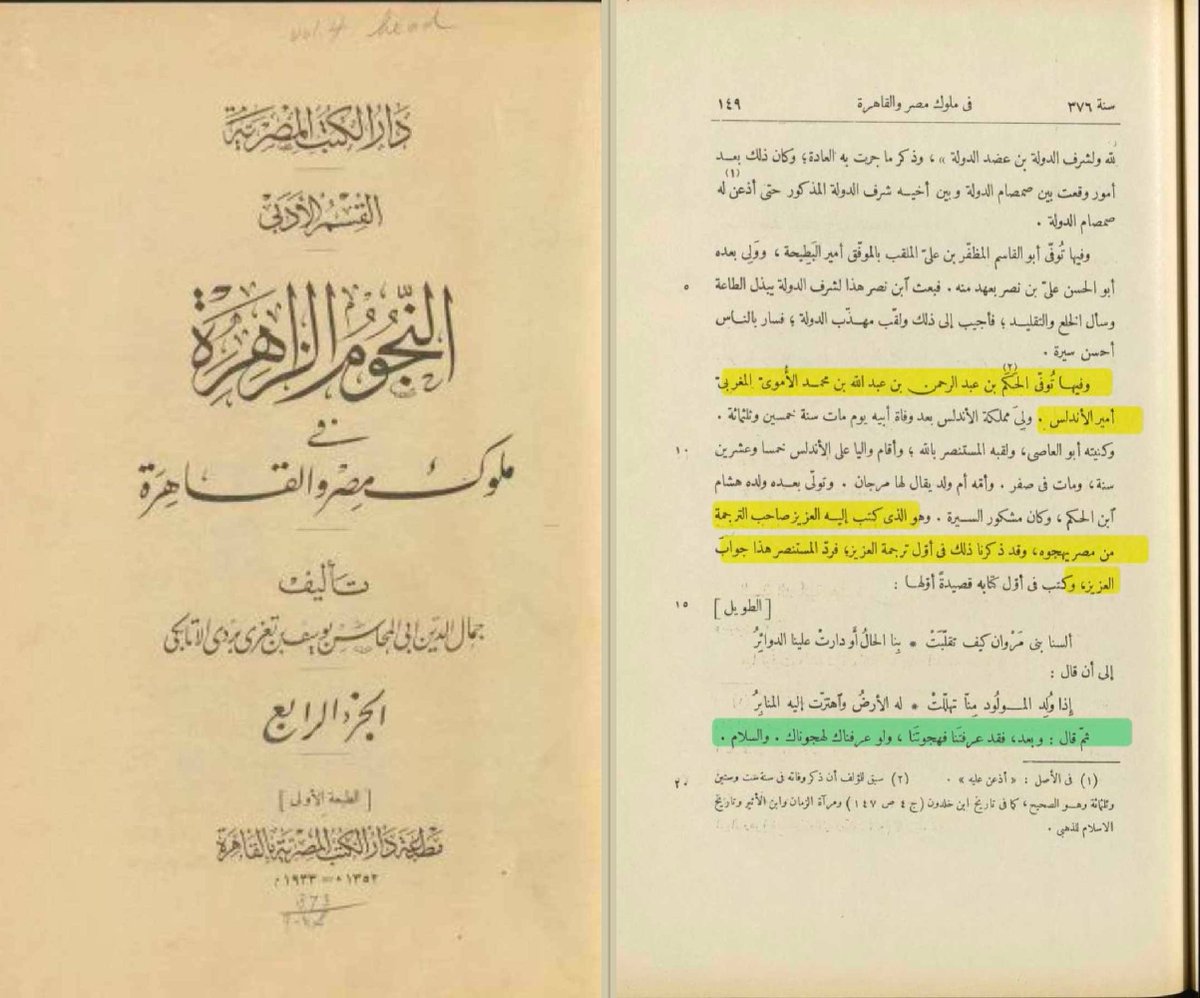 vol. 4 head
دار الكتب المصرية
القسم الأدبى
النجوم الزاهرة
فى
ملوك مصر والقاهرة
تأليف
جمال الدين أبى المحاسن يوسف بن تغرى بردى الأتابكى
الجزء الرابع
[الطبعة الأولى]
مطبعة دار الكتب المصرية بالقاهرة
١٣٥٢ هـ = ١٩٣٣ م
سنة ٣٧٦ فى ملوك مصر والقاهرة ١٤٩
لله ولشرف الدولة بن عضد الدولة » ، وذكر ما جرت به العادة؛ وكان ذلك بعد
أمور وقعت بين صمصام الدولة وبين أخيه شرف الدولة المذكور حتى أذعن (١) له
صمصام الدولة .
وفيها تُوفّى أبو القاسم المظفّر بن علىّ الملقب بالموفّق أمير البَطِيحة ، ووَلِى بعده
أبو الحسن علىّ بن نصر بعهد منه . فبعث ٱبن نصر هذا لشرف الدولة يبذل الطاعة ٥
وسأل الخلع والتقليد ؛ فأجيب إلى ذلك ولقّب مهذّب الدولة ؛ فسار بالناس
أحسن سيرة .
وفيها تُوفّى الحَكَم (٢) بن عبد الرحمن بن عبد الله بن محمد الأُموىّ المغربىّ
أمير الأندلس . ولِىَ مملكة الأندلس بعد وفاة أبيه يوم مات سنة خمسين وثلثمائة .
وكنيته أبو العاصى، ولقبه المستنصر بالله ؛ وأقام واليا على الأندلس خمسا وعشرين ١٠
سنة ، ومات فى صفر . وأمّه أم ولد يقال لها مرجان . وتولّى بعده ولده هشام
ٱبن الحكم ، وكان مشكور السيرة . وهو الذى كتب إليه العزيز صاحب الترجمة
من مصر يهجوه، وقد ذكرنا ذلك فى أوّل ترجمة العزيز؛ فردّ المستنصر هذا جوابَ
العزيز، وكتب فى أوّل كتابه قصيدةً أوّلها :
[الطويل] ١٥
ألسنا بنى مَرْوان كيف تقلّبَتْ * بِنا الحالُ أو دارتْ علينا الدوائرُ
إلى أن قال :
إذا وُلِد المولُود مِنّا تهلّلتْ * له الأرضُ وٱهتزّت إليه المنابِرُ
ثمّ قال : وبعد، فقد عرفتَنا فهجوتَنا ، ولو عرفناك لهجوناك . والسلام .
(١) فى الأصل : « أذعن عليه » . (٢) سبق للمؤلف أن ذكر وفاته فى سنة ست وستين ٢٠
وثلثمائة وهو الصحيح ، كما فى تاريخ ابن خلدون (ج ٤ ص ١٤٧) ومرآة الزمان وابن الأثير وتاريخ
الاسلام للذهبى .